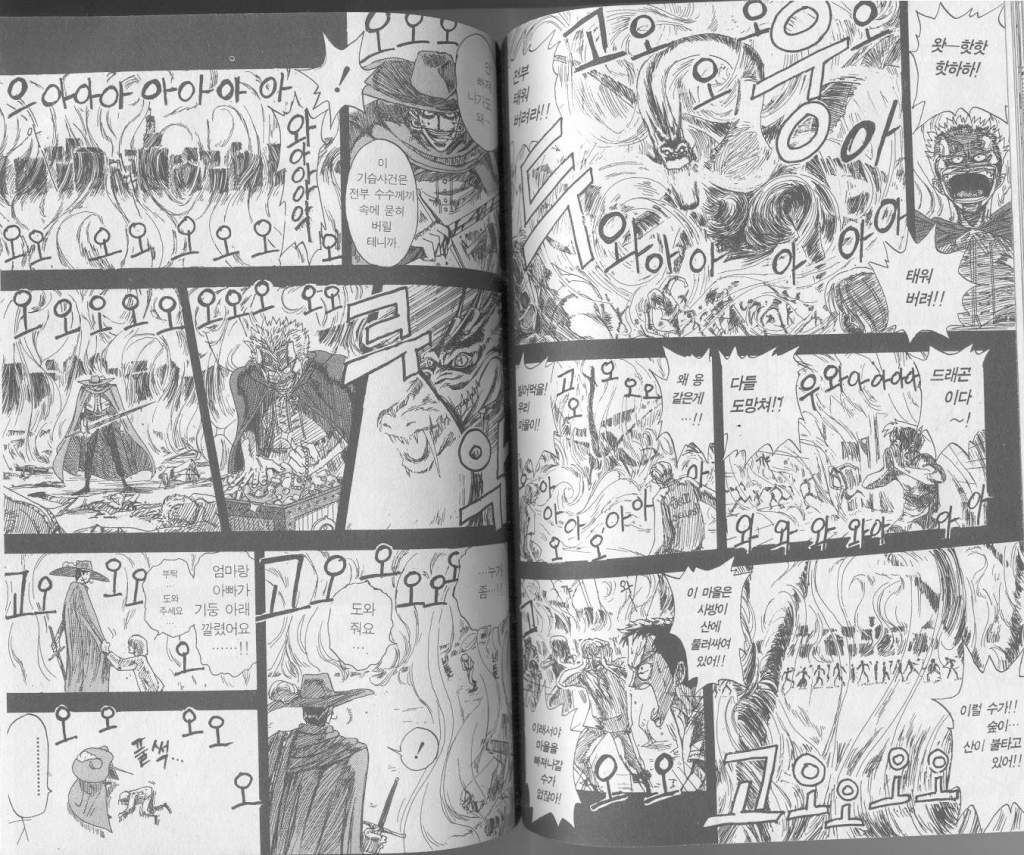 왓—핫핫
핫하하!
태워
버려!!
전부
태워
버려라!!
고오오오오
우웅
와아아아아아
드래곤
이다
~!
우와아아아아
다들
도망쳐!?
와와와와아
와아
왜 용
같은게
…!!
고오오오
우리
마을이!
아아아아
오오
이럴 수가!!
숲이…
산이 불타고
있어!!
고오오오오
이 마을은
사방이
산에
둘러싸여
있어!!
이래서야
마을을
빠져나갈
수가
없잖아!
오오
오오오
이
기습사건은
전부 수수께끼
속에 묻혀
버릴
테니까
!
우아아아아아아아
와아아아아
오오오오오오오오
오오오오오
오오오오오
…누가
좀…!!
도와
줘요
…
고오오오오
!
엄마랑
아빠가
기둥 아래
깔렸어요
……!!
부탁
…
도와
주세요
고오오오
오
오오오오
플썩…
오
………